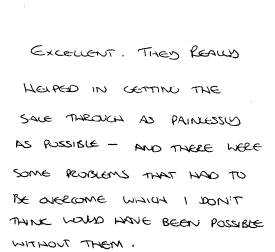 EXCELLENT. THEY REALLY
HELPED IN GETTING THE
SALE THROUGH AS PAINLESSLY
AS POSSIBLE - AND THERE WERE
SOME PROBLEMS THAT HAD TO
BE OVERCOME WHICH I DON'T
THINK WOULD HAVE BEEN POSSIBLE
WITHOUT THEM.